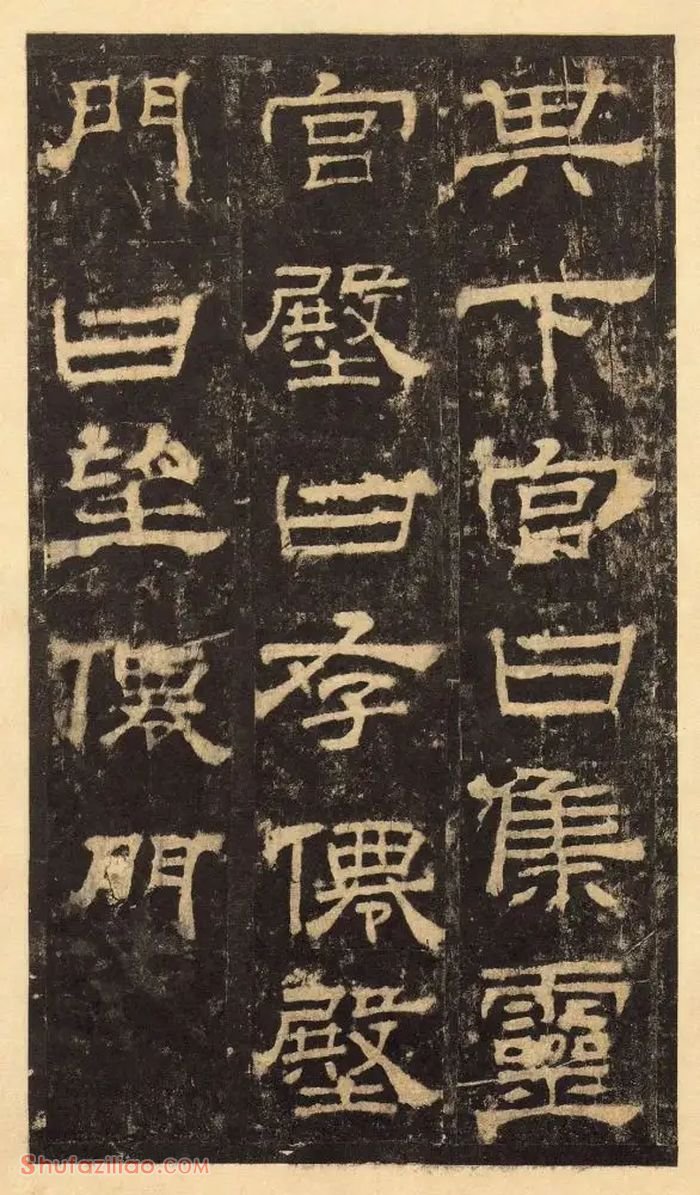 其下宮曰集靈
宮殿曰存僊殿
門曰望僊門
Shufaziliao.COM